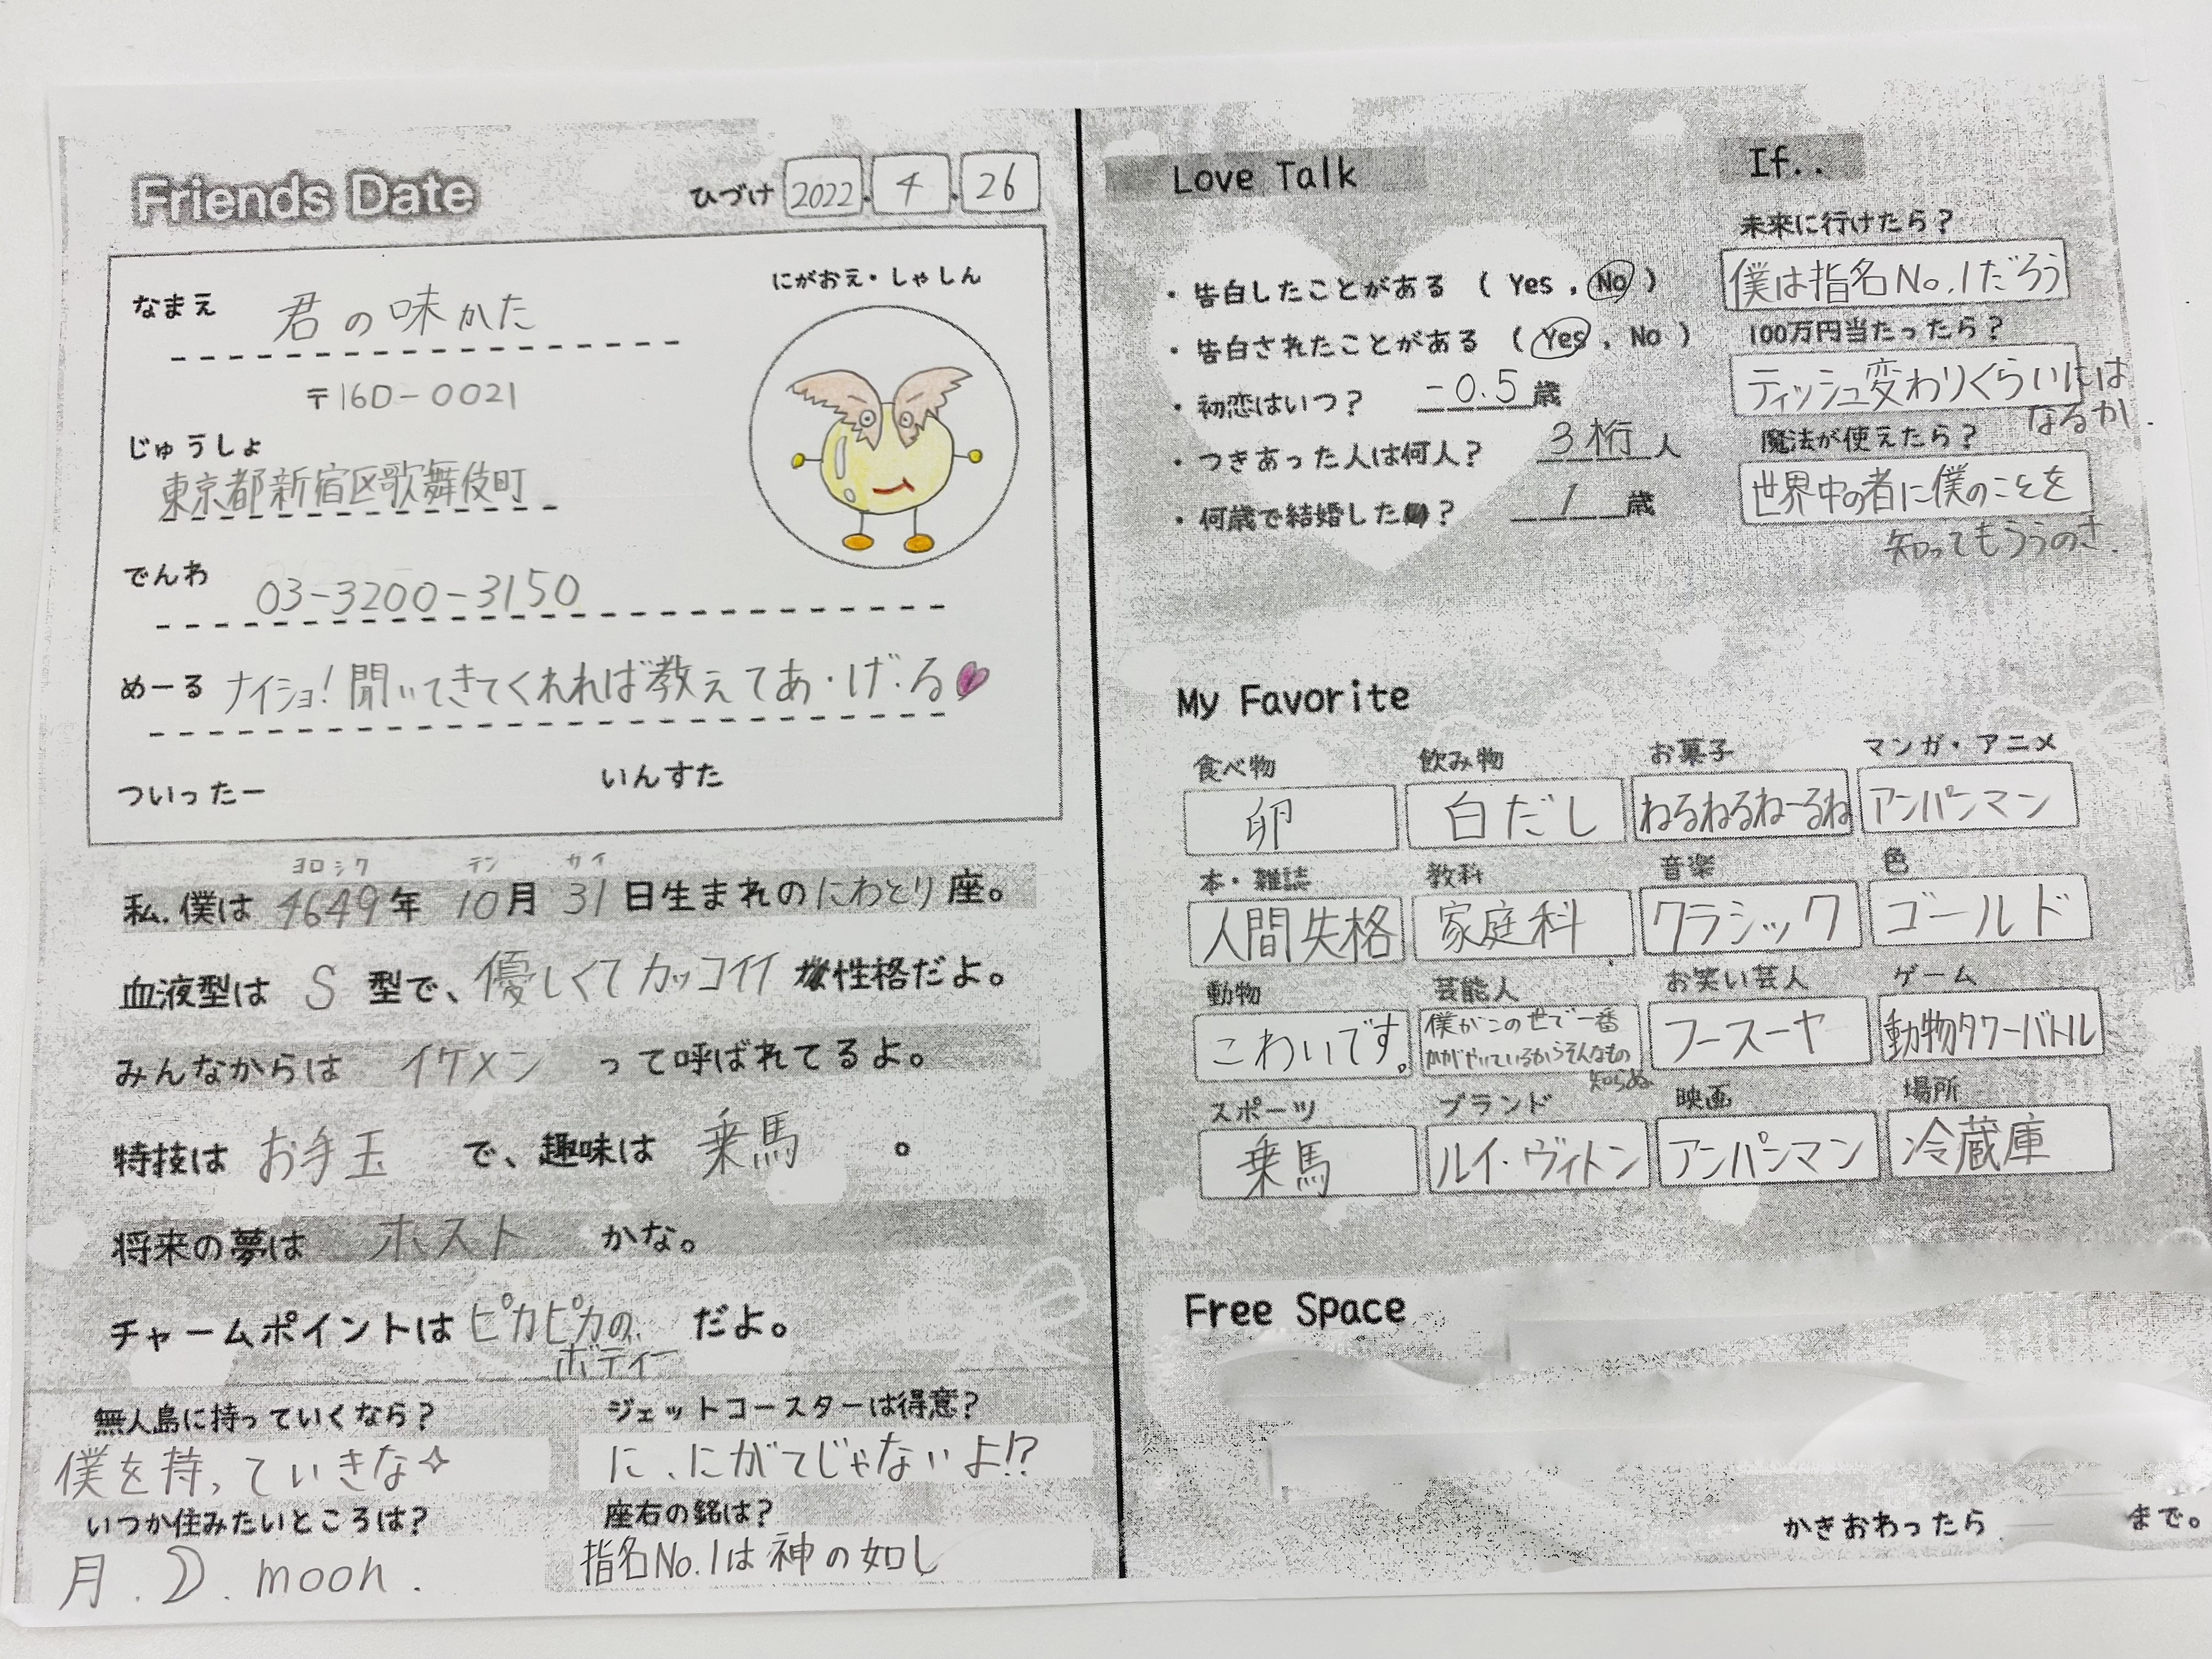 Friends Date
ひづけ 2022. 4. 26
なまえ 君の味かた
にがおえ・しゃしん
〒160-0021
じゅうしょ
東京都新宿区歌舞伎町
でんわ 03-3200-3150
めーる ナイショ!聞いてきてくれれば教えてあ・げ・る
ついったー いんすた
ヨロシク テン サイ
私.僕は 4649年 10月 31日生まれのにわとり座。
血液型は S 型で、優しくてカッコイイ 性格だよ。
みんなからは イケメン って呼ばれてるよ。
特技は お手玉 で、趣味は 乗馬 。
将来の夢は ホスト かな。
チャームポイントは ピカピカの だよ。
ボディー
無人島に持っていくなら?
僕を持っていきな
ジェットコースターは得意?
に、にがてじゃないよ!?
いつか住みたいところは?
月. . moon.
座右の銘は?
指名No.1は神の如し
Love Talk
・告白したことがある ( Yes , No )
・告白されたことがある ( Yes , No )
・初恋はいつ? -0.5歳
・つきあった人は何人? 3桁人
・何歳で結婚した ? 1歳
If..
未来に行けたら?
僕は指名No.1だろう
100万円当たったら?
ティッシュ変わりくらいには
なるか.
魔法が使えたら?
世界中の者に僕のことを
知ってもううのさ.
My Favorite
食べ物 飲み物 お菓子 マンガ・アニメ
卵 白だし ねるねるねーるね アンパンマン
本・雑誌 教科 音楽 色
人間失格 家庭科 クラシック ゴールド
動物 芸能人 お笑い芸人 ゲーム
こわいです。 僕がこの世で一番 フースーヤ 動物タワーバトル
かがやいているからそんなもの
知らぬ
スポーツ ブランド 映画 場所
乗馬 ルイ・ヴィトン アンパンマン 冷蔵庫
Free Space
かきおわったら まで。